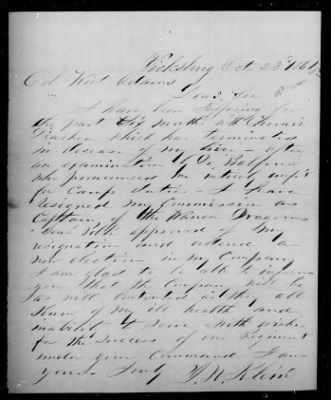 Vicksburg Oct 23rd 1861
Col Wirt Adams
Dear Sir
I have been suffering for
the past month with Chronic
which has terminated
in disease of my liver - after
an examination by Dr Balfour
who pronounced me entirely unfit
for Camp duties - I have
resigned my Commission as
Captain of the Warren Dragoons
Genl Polk approved of my
resignation and ordered a
new election in my Company
I am glad to be able to inform
you that the Company will be
as well contented as they all
know of my ill health and
inability to serve - With wishes
for the success of our Regiment
under your Command I am
yours truly J. A. Klein